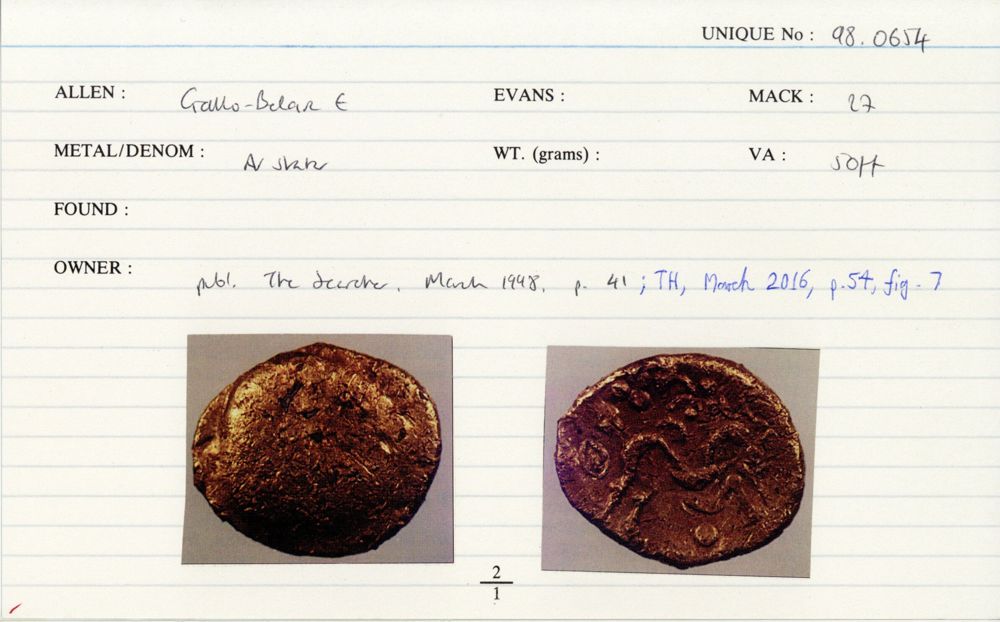 UNIQUE No : 98.0654
ALLEN : Gallo-Belgic E EVANS : MACK : 27
METAL/DENOM : AV stater WT. (grams) : VA : 50ff
FOUND :
OWNER : publ. The Searcher, March 1998, p. 41 ; TH, March 2016, p.54, fig. 7
2
1